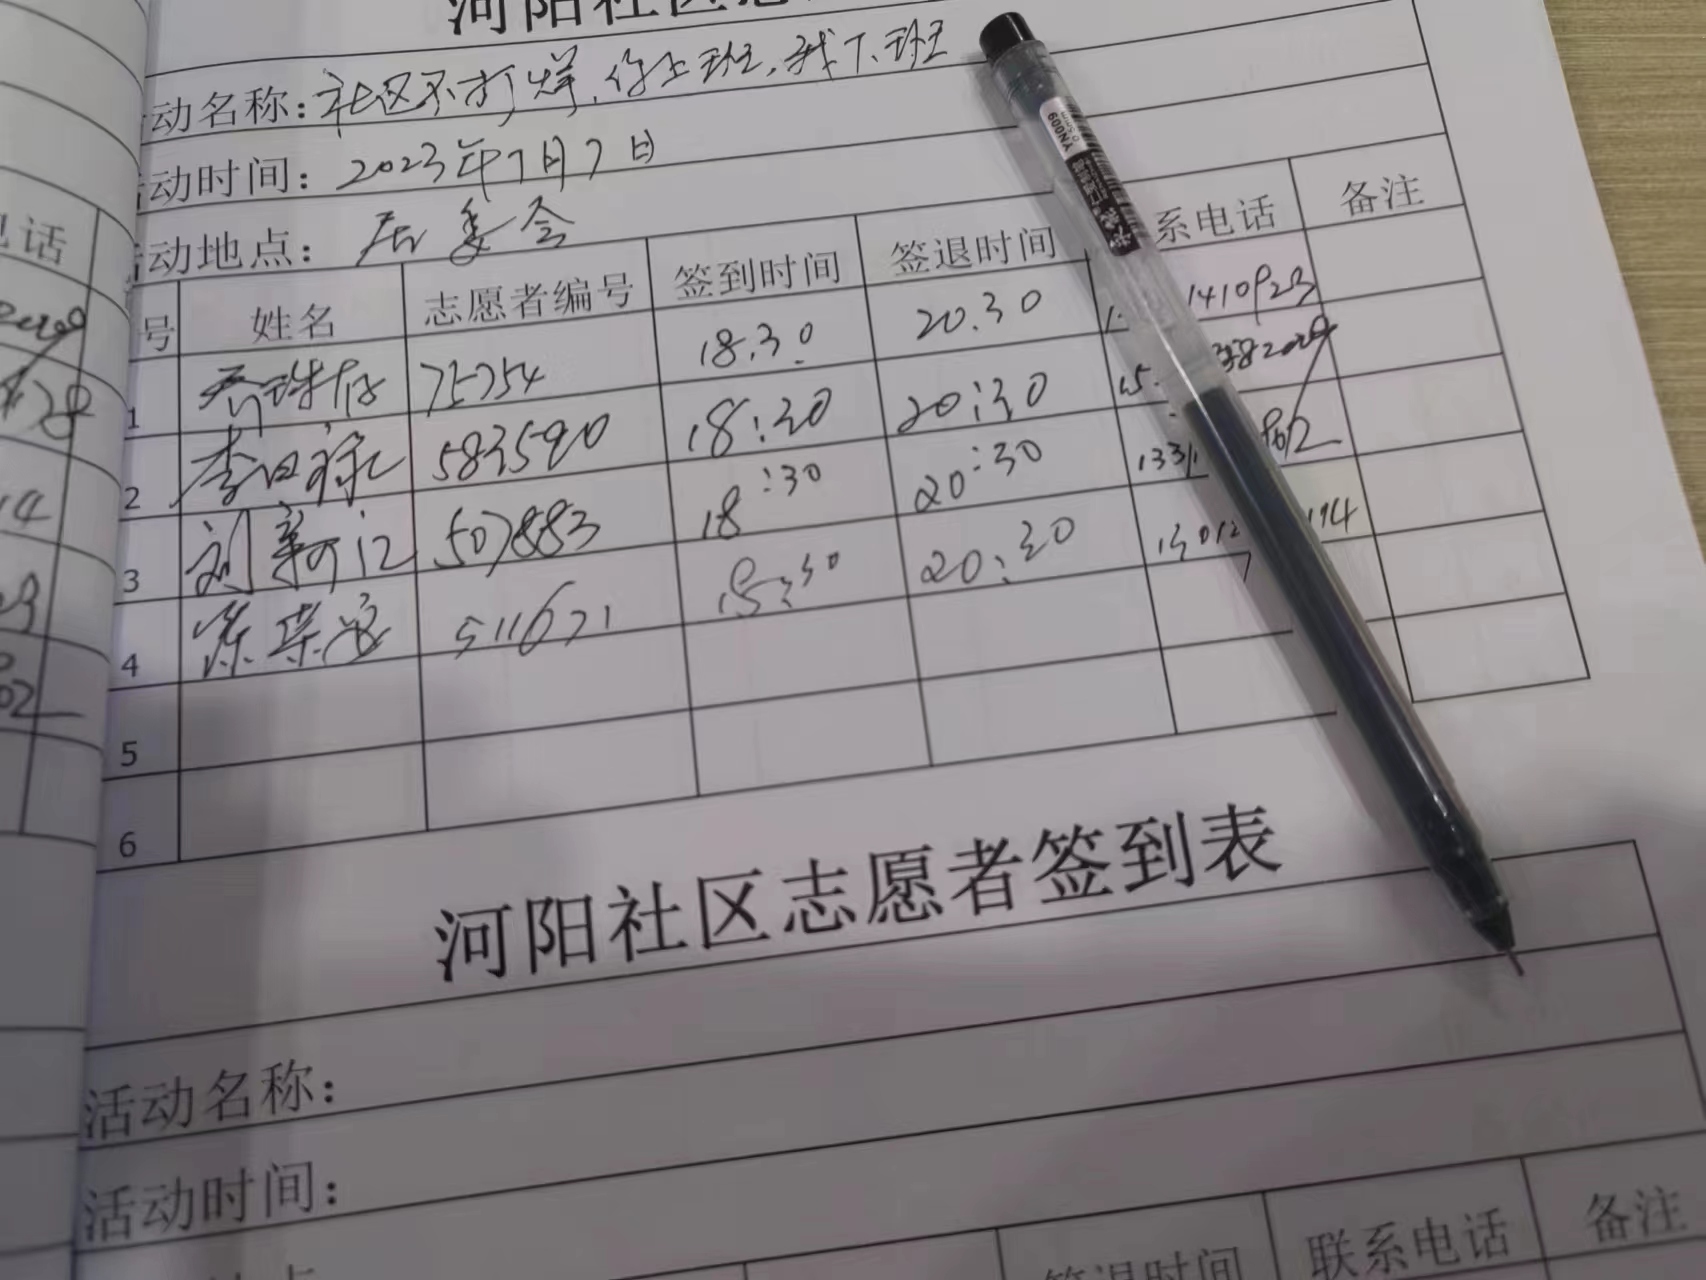 河阳社区志
动名称：社区不打烊，你上班，我下班
动时间：2023年7月7日
动地点：居委会
号 姓名 志愿者编号 签到时间 签退时间 系电话 备注
1 75754 18.30 20.30 1410923
2 李日禄 583590 18:30 20:30
3 刘新江 507883 18:30 20:30 1331
4 陈荣 511671 18:30 20:30 13012 194
5
6
河阳社区志愿者签到表
活动名称：
活动时间：
签退时间 联系电话 备注
话